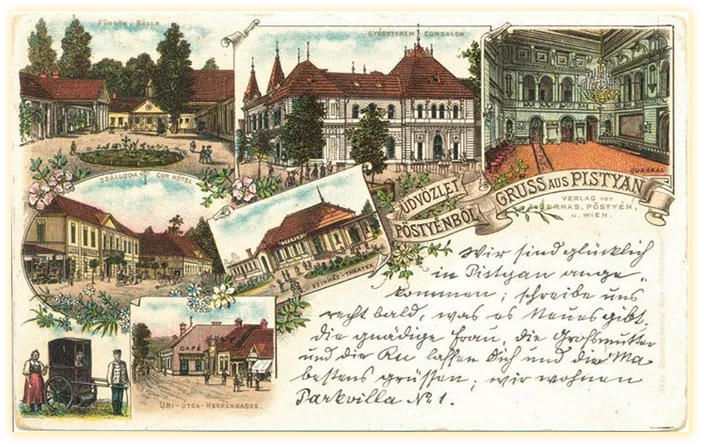 FÜRDŐK - BÄDER
GYÓGYTEREM CURSALON
CURSAAL
SZÁLLODA CUR HÔTEL
SZINHÁZ - THEATER
CAFÉ
URI-UTCA - HERRENGASSE.
ÜDVÖZLET
PÖSTYÉNBŐL
GRUSS AUS PISTYAN
VERLAG VON
A. BERNAS, PÖSTYÉN,
U. WIEN.
Wir sind glücklich
in Pistyan ange„
kommen; schreibe uns
recht bald, was es Neues gibt,
die gnädige Frau, die Großmutter
und die lassen Dich und die Ma
bestens grüssen; wir wohnen
Parkvilla No 1.